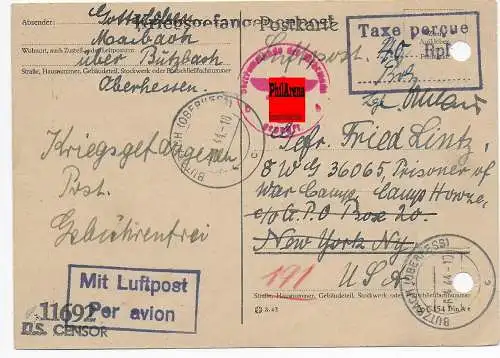 Absender: Gottschalk
Kriegsgefangenenpost
Postkarte
Wohnort, auch Zustell- oder Leitpostamt
Maibach
über Butzbach
Straße, Hausnummer, Gebäudeteil, Stockwerk oder Postschließfachnummer
Oberhessen.
Luftpost
Taxe perçue
40 Rpf
PhilArena
BUTZBACH (OBERHESS)
Kriegsgefangenen
Post.
Gebührenfrei
Gefr. Fried Lintz,
8 W G 36065, Prisoner of
War Camp, Camp Howze,
c/o G.P.O Box 20.
New York Ny.
191
USA
Straße, Hausnummer, Gebäudeteil, Stockwerk oder Postschließfachnummer
BUTZBACH (OBERHESS)
Mit Luftpost
Par avion
11692
U.S. CENSOR